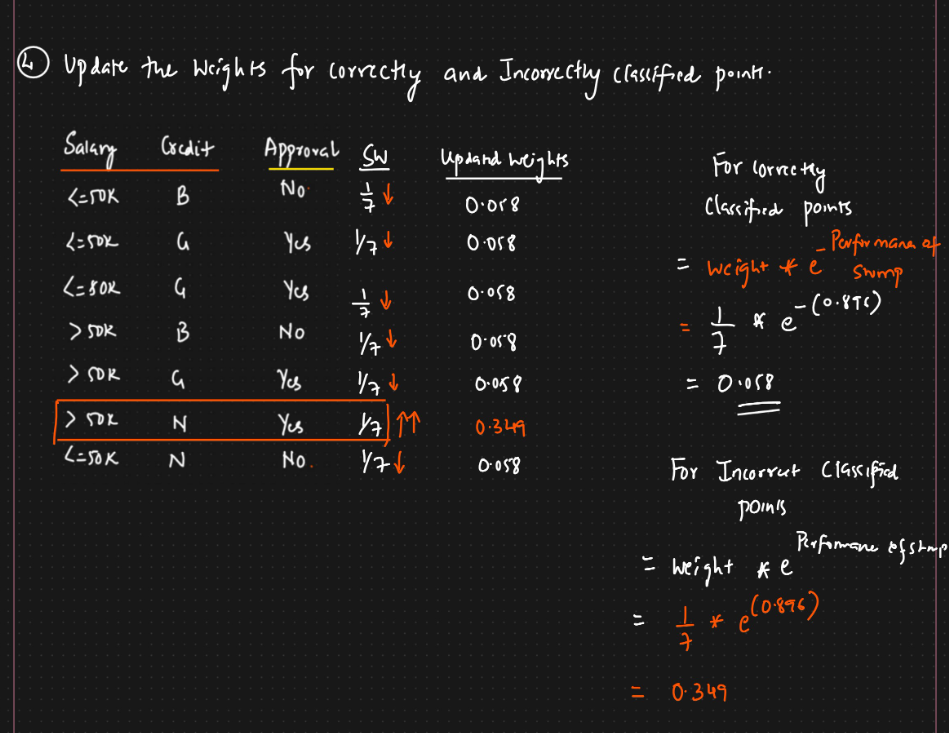 ④ Update the Weights for correctly and Incorrectly classified points.
Salary Credit Approval SW Updated weights
<=50K B No. 1/7 ↓ 0.058
<=50K G Yes 1/7 ↓ 0.058
<=50K G Yes 1/7 ↓ 0.058
>50K B No 1/7 ↓ 0.058
>50K G Yes 1/7 ↓ 0.058
>50K N Yes 1/7 ↑↑ 0.349
<=50K N No. 1/7 ↓ 0.058
For correctly
Classified points
= weight * e^-Performance of
stump
= 1/7 * e^-(0.896)
= 0.058
For Incorrect Classified
points
= weight * e^Performance of stump
= 1/7 * e^(0.896)
= 0.349